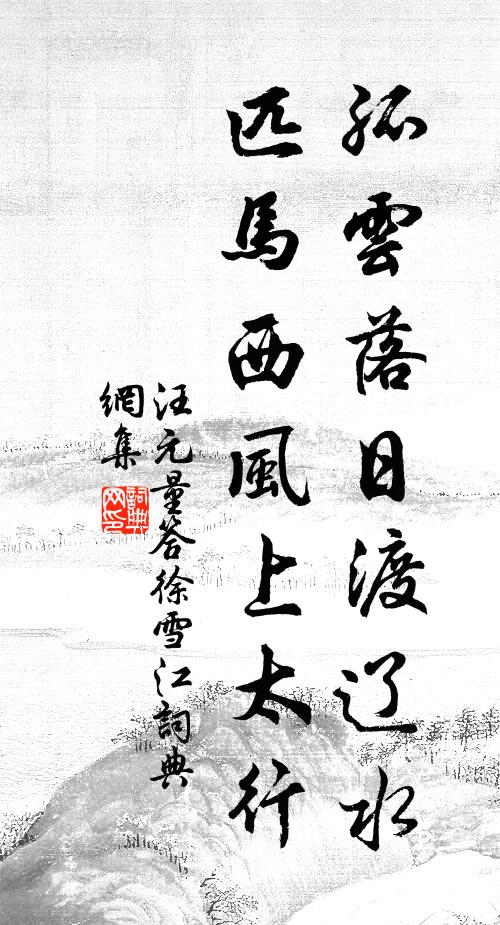 孤雲落日渡辽水
匹馬西風上太行
汪元量答徐雪江詞典
網集
詞典
网印